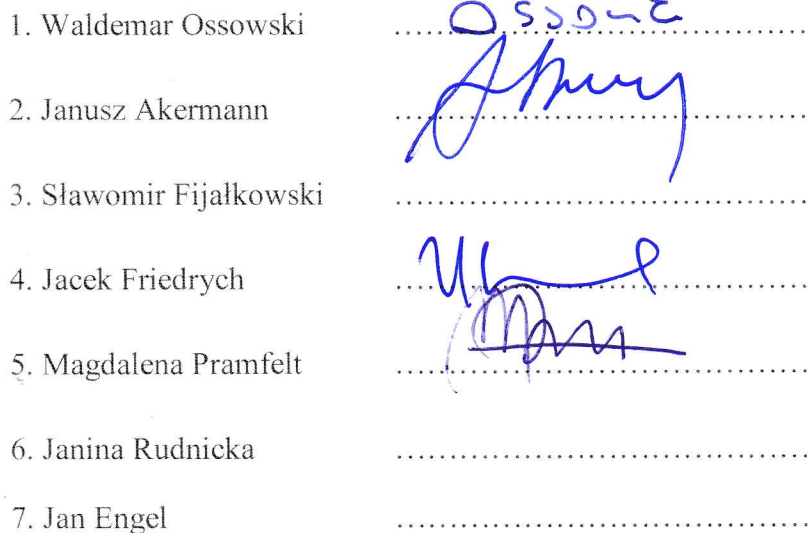 1. Waldemar Ossowski ........................................
2. Janusz Akermann ........................................
3. Sławomir Fijałkowski ........................................
4. Jacek Friedrych ........................................
5. Magdalena Pramfelt ........................................
6. Janina Rudnicka ........................................
7. Jan Engel ........................................